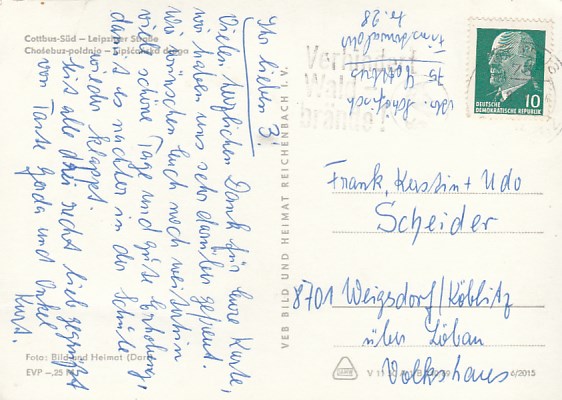 Cottbus-Süd — Leipziger Straße
Chośebuz-połdnjo — Lipšćańska droga
Ihr lieben 3!
Vielen herzlichen Dank für Eure Karte,
wir haben uns sehr darüber gefreut.
Wir wünschen Euch noch weiterhin
viele schöne Tage und gute Erholung,
damit es nachher in der Schule
wieder klappt.
Seid alle drei recht lieb gegrüßt
von Tante Gerda und Onkel
Kurt.
Foto: Bild und Heimat
EVP —,25 M
VEB BILD UND HEIMAT REICHENBACH I. V.
75 Cottbus
Str. 28
Verhindert
Wald-
brände!
DEUTSCHE
DEMOKRATISCHE REPUBLIK
10
Frank, Kerstin + Udo
Scheider
8701 Weigsdorf/Köblitz
über Löbau
Volkshaus
V 11
6/2015